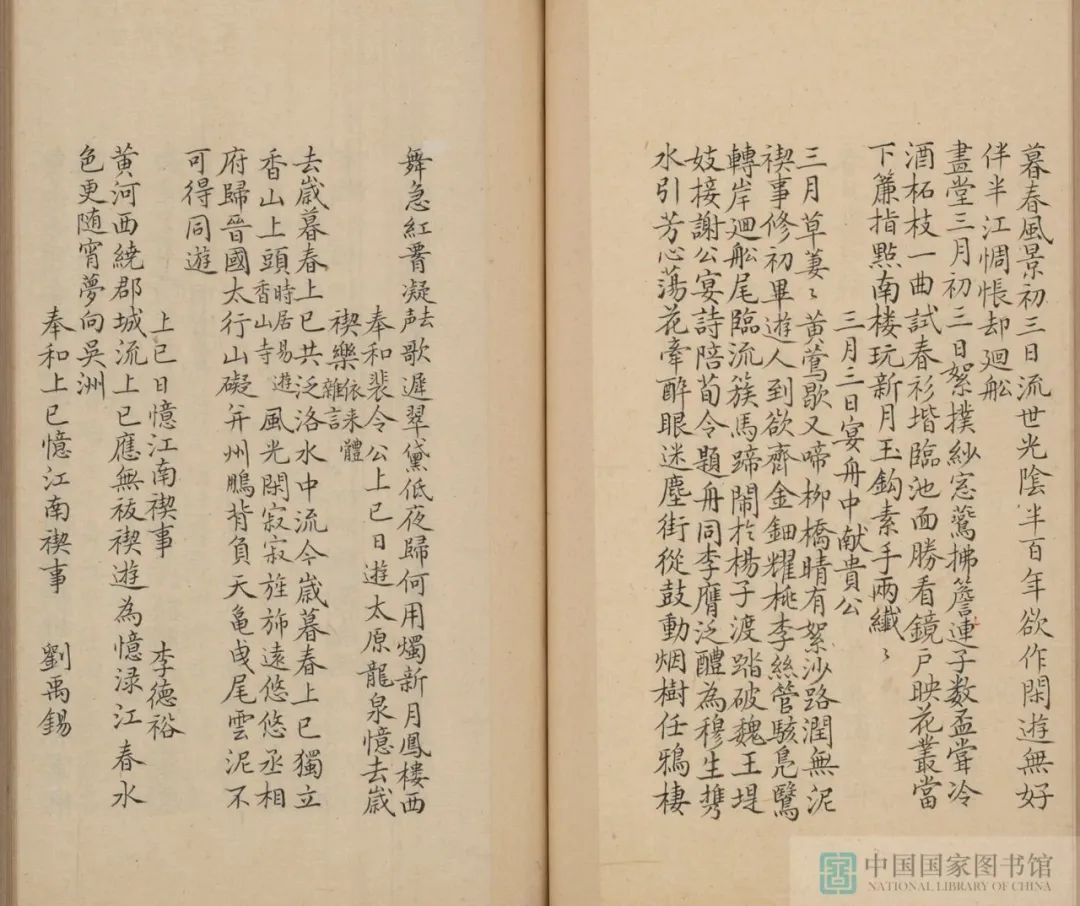 暮春風景初三日流世光陰半百年欲作閑遊無好
伴半江惆悵却廻舩
畫堂三月初三日絮撲紗窓鷰拂簷連子数盃甞冷
酒柘枝一曲試春衫堦臨池面勝看鏡戸映花叢當
下簾指點南楼玩新月玉鈎素手兩纎〻
三月三日宴舟中献貴公
三月草萋〻黄鶯歇又啼柳橋晴有絮沙路潤無泥
禊事修初畢遊人到欲齊金鈿耀桃李絲管駭鳧鷖
轉岸廻舩尾臨流簇馬蹄鬧於楊子渡踏破魏王堤
妓接謝公宴詩陪荀令題舟同李膺泛醴為穆生携
水引芳心蕩花牽酔眼迷塵街從鼓動烟樹任鴉棲
舞急紅𦝫凝去声歌遲翠黛低夜歸何用燭新月鳳樓西
奉和裴令公上巳日遊太原龍泉憶去歳
禊樂依来體雜言
去歳暮春上巳共泛洛水中流今歳暮春上巳獨立
香山上頭時居易遊香山寺風光閑寂寂旌斾遠悠悠丞相
府歸晉國太行山礙并州鵬背負天亀曵尾雲泥不
可得同遊
上巳日憶江南禊事 李德裕
黄河西繞郡城流上巳應無祓禊遊為憶渌江春水
色更随宵夢向吳洲
奉和上巳憶江南禊事 劉禹錫
中国国家图书馆
NATIONAL LIBRARY OF CHINA